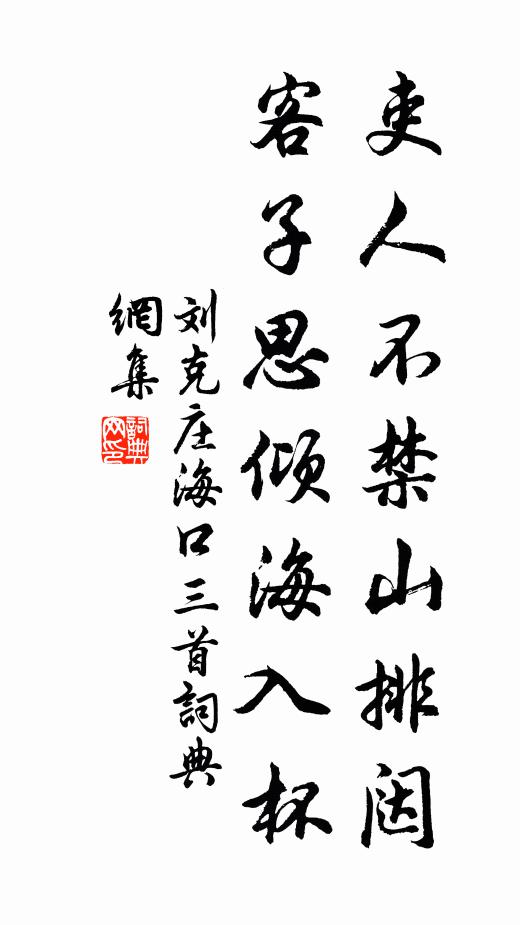 吏人不禁山排闼
客子思倾海入杯
刘克庄海口三首詞典
網集
詞典
网印